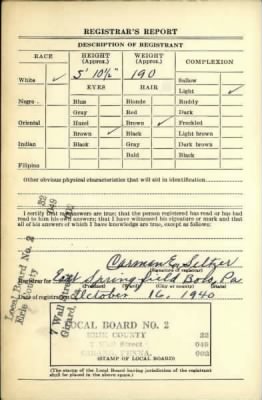 REGISTRAR'S REPORT
DESCRIPTION OF REGISTRANT
RACE HEIGHT (Approx.) WEIGHT (Approx.) COMPLEXION
5' 10½" 190
White ✓ Sallow
EYES HAIR Light ✓
Negro Blue Blonde Ruddy
Gray Red Dark
Oriental Hazel Brown ✓ Freckled
Brown ✓ Black Light brown
Indian Black Gray Dark brown
Bald Black
Filipino
Other obvious physical characteristics that will aid in identification
I certify that my answers are true; that the person registered has read or has had
read to him his own answers; that I have witnessed his signature or mark and that
all of his answers of which I have knowledge are true, except as follows:
Local Board No. 2
Erie County
7 Wall Street
Girard,
32
049
(Signature of registrar)
East Springfield Boro, Pa
(Precinct) (City or county) (State)
Date of registration October 16, 1940
LOCAL BOARD NO. 2
ERIE COUNTY 32
7 Wall Street 049
GIRARD, PENNA. 002
(STAMP OF LOCAL BOARD)
(The stamp of the Local Board having jurisdiction of the registrant
shall be placed in the above space.)